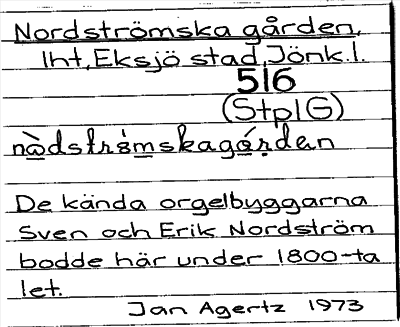 Nordströmska gården,
Int, Eksjö stad, Jönk.l.
516
(StplG)
nàdströ́mskagá̊rden
De kända orgelbyggarna
Sven och Erik Nordström
bodde här under 1800-ta
let.
Jan Agertz 1973